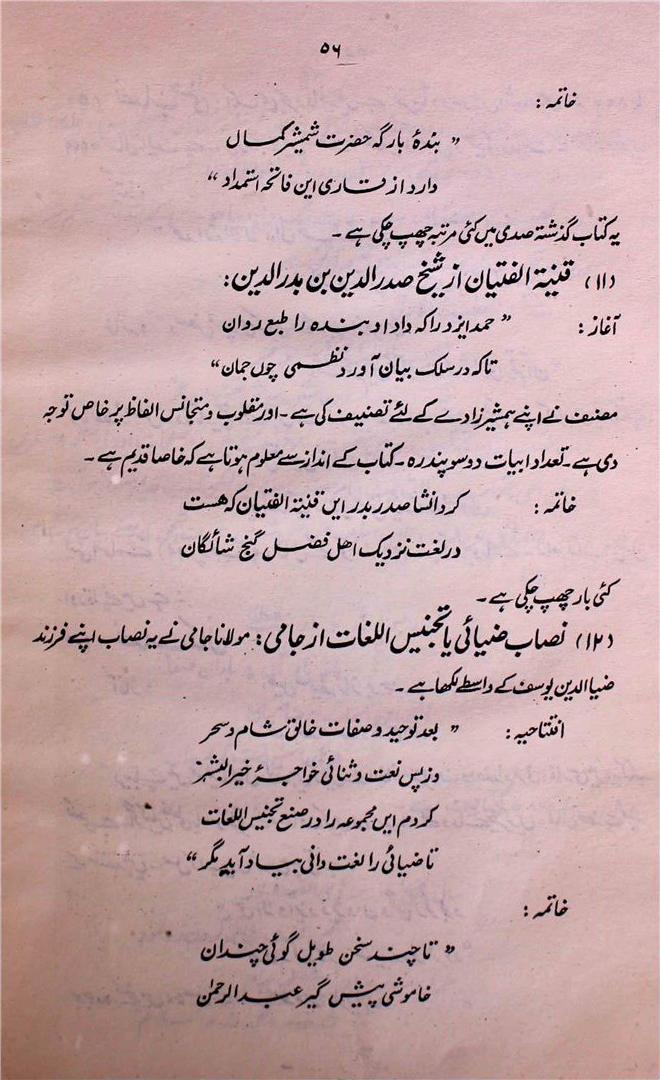 ۵۶
خاتمہ :
" بندۂ بارگہ حضرت شمشیر کمال
دارد از قاری این فاتحہ استمداد "
یہ کتاب گذشتہ صدی میں کئی مرتبہ چھپ چکی ہے ۔
(۱۱) قنیۃ الفتیان از شیخ صدرالدین بن بدرالدین :
آغاز : " حمد ایزد را کہ داد او بندہ را طبع روان
تاکہ در سلک بیان آورد نظمی چوں جمان "
مصنف نے اپنے ہمشیرزادے کے لئے تصنیف کی ہے ۔ اور مقلوب و متجانس الفاظ پر خاص توجہ
دی ہے ۔ تعداد ابیات دوسو پندرہ ۔ کتاب کے انداز سے معلوم ہوتا ہے کہ خاصا قدیم ہے ۔
خاتمہ : کرد انشا صدر بدر ایں قنیۃ الفتیان کہ ھست
در لغت نزدیک اھل فضل گنج شائگان
کئی بار چھپ چکی ہے ۔
(۱۲) نصاب ضیائی یا تجنیس اللغات از جامی : مولانا جامی نے یہ نصاب اپنے فرزند
ضیاالدین یوسف کے واسطے لکھا ہے ۔
افتتاحیہ : " بعد توحید و صفات خالق شام و سحر
وز پس نعت و ثنائی خواجۂ خیر البشر
کردم ایں مجموعہ را در صنع تجنیس اللغات
تا ضیائی را لغت دانی بیاد آید مگر "
خاتمہ :
" تا چند سخن طویل گوئی چندان
خاموشی پیش گیر عبدالرحمٰن